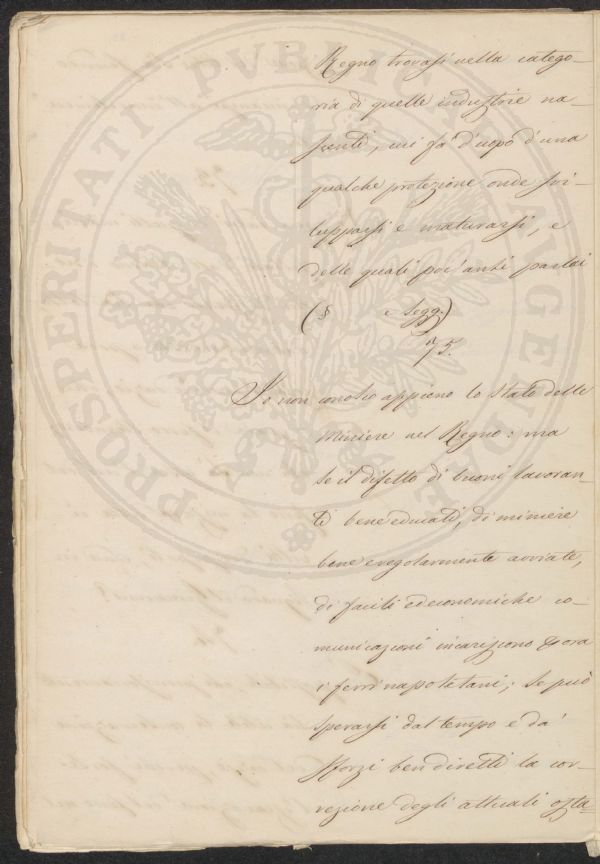 Regno trovasi nella catego-
ria di quelle industrie na-
scenti, cui fa d'uopo d'una
qualche protezione onde svi-
luppassi e maturarsi, e
delle quali poc'anzi parlai
(§ e segg.)
75.
Io non conosco appieno lo stato delle
Miniere nel Regno: ma
se il difetto di buoni lavoran-
ti bene educati, di miniere
bene e regolarmente avviate,
di facili ed economiche co-
municazioni incariscono ora
i ferri napoletani; se può
sperarsi dal tempo e da'
sforzi ben diretti la cor-
rezione degli attuali osta-
PROSPERITATI PVBLICAE AVGENDAE